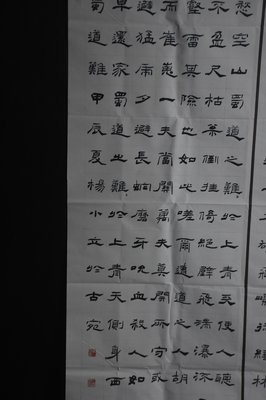 愁空山蜀道之難於上青天使人聽
不盈尺枯松倒挂倚絕壁飛湍瀑流
壑雷其險也如此嗟爾遠道之人胡
而崔嵬一夫當關萬夫莫開所守或
避猛虎夕避長蛇磨牙吮血殺人如
早還家蜀道之難於上青天側身西
蜀道難甲辰夏楊小立於古宛